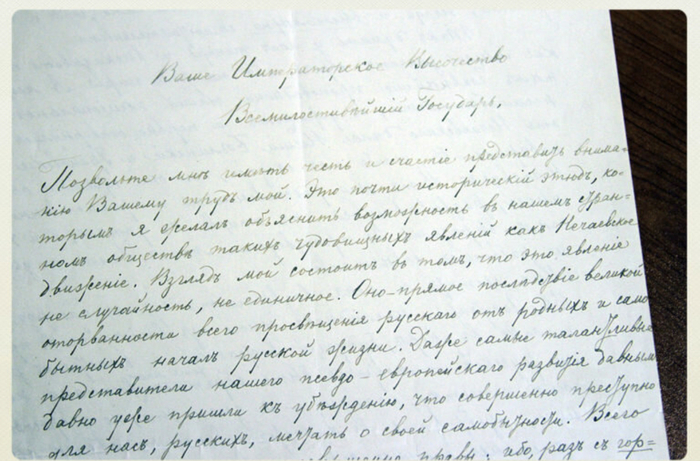 Ваше Императорское Высочество
Всемилостивѣйшій Государь,
Позвольте мнѣ имѣть честь и счастіе представить внима-
нію Вашему трудъ мой. Это почти историческій этюдъ, ко-
торымъ я желалъ объяснить возможность въ нашемъ стран-
номъ обществѣ такихъ чудовищныхъ явленій какъ Нечаевское
движеніе. Взглядъ мой состоитъ въ томъ, что это явленіе
не случайность, не единичное. Оно-прямое послѣдствіе великой
оторванности всего просвѣщенія русскаго отъ родныхъ и само
бытныхъ началъ русской жизни. Даже самые талантливые
представители нашего псевдо-европейскаго развитія давнымъ
давно уже пришли къ убѣжденію, что совершенно преступно
для насъ, русскихъ, мечтать о своей самобытности. Всего
правы; ибо, разъ съ гор-